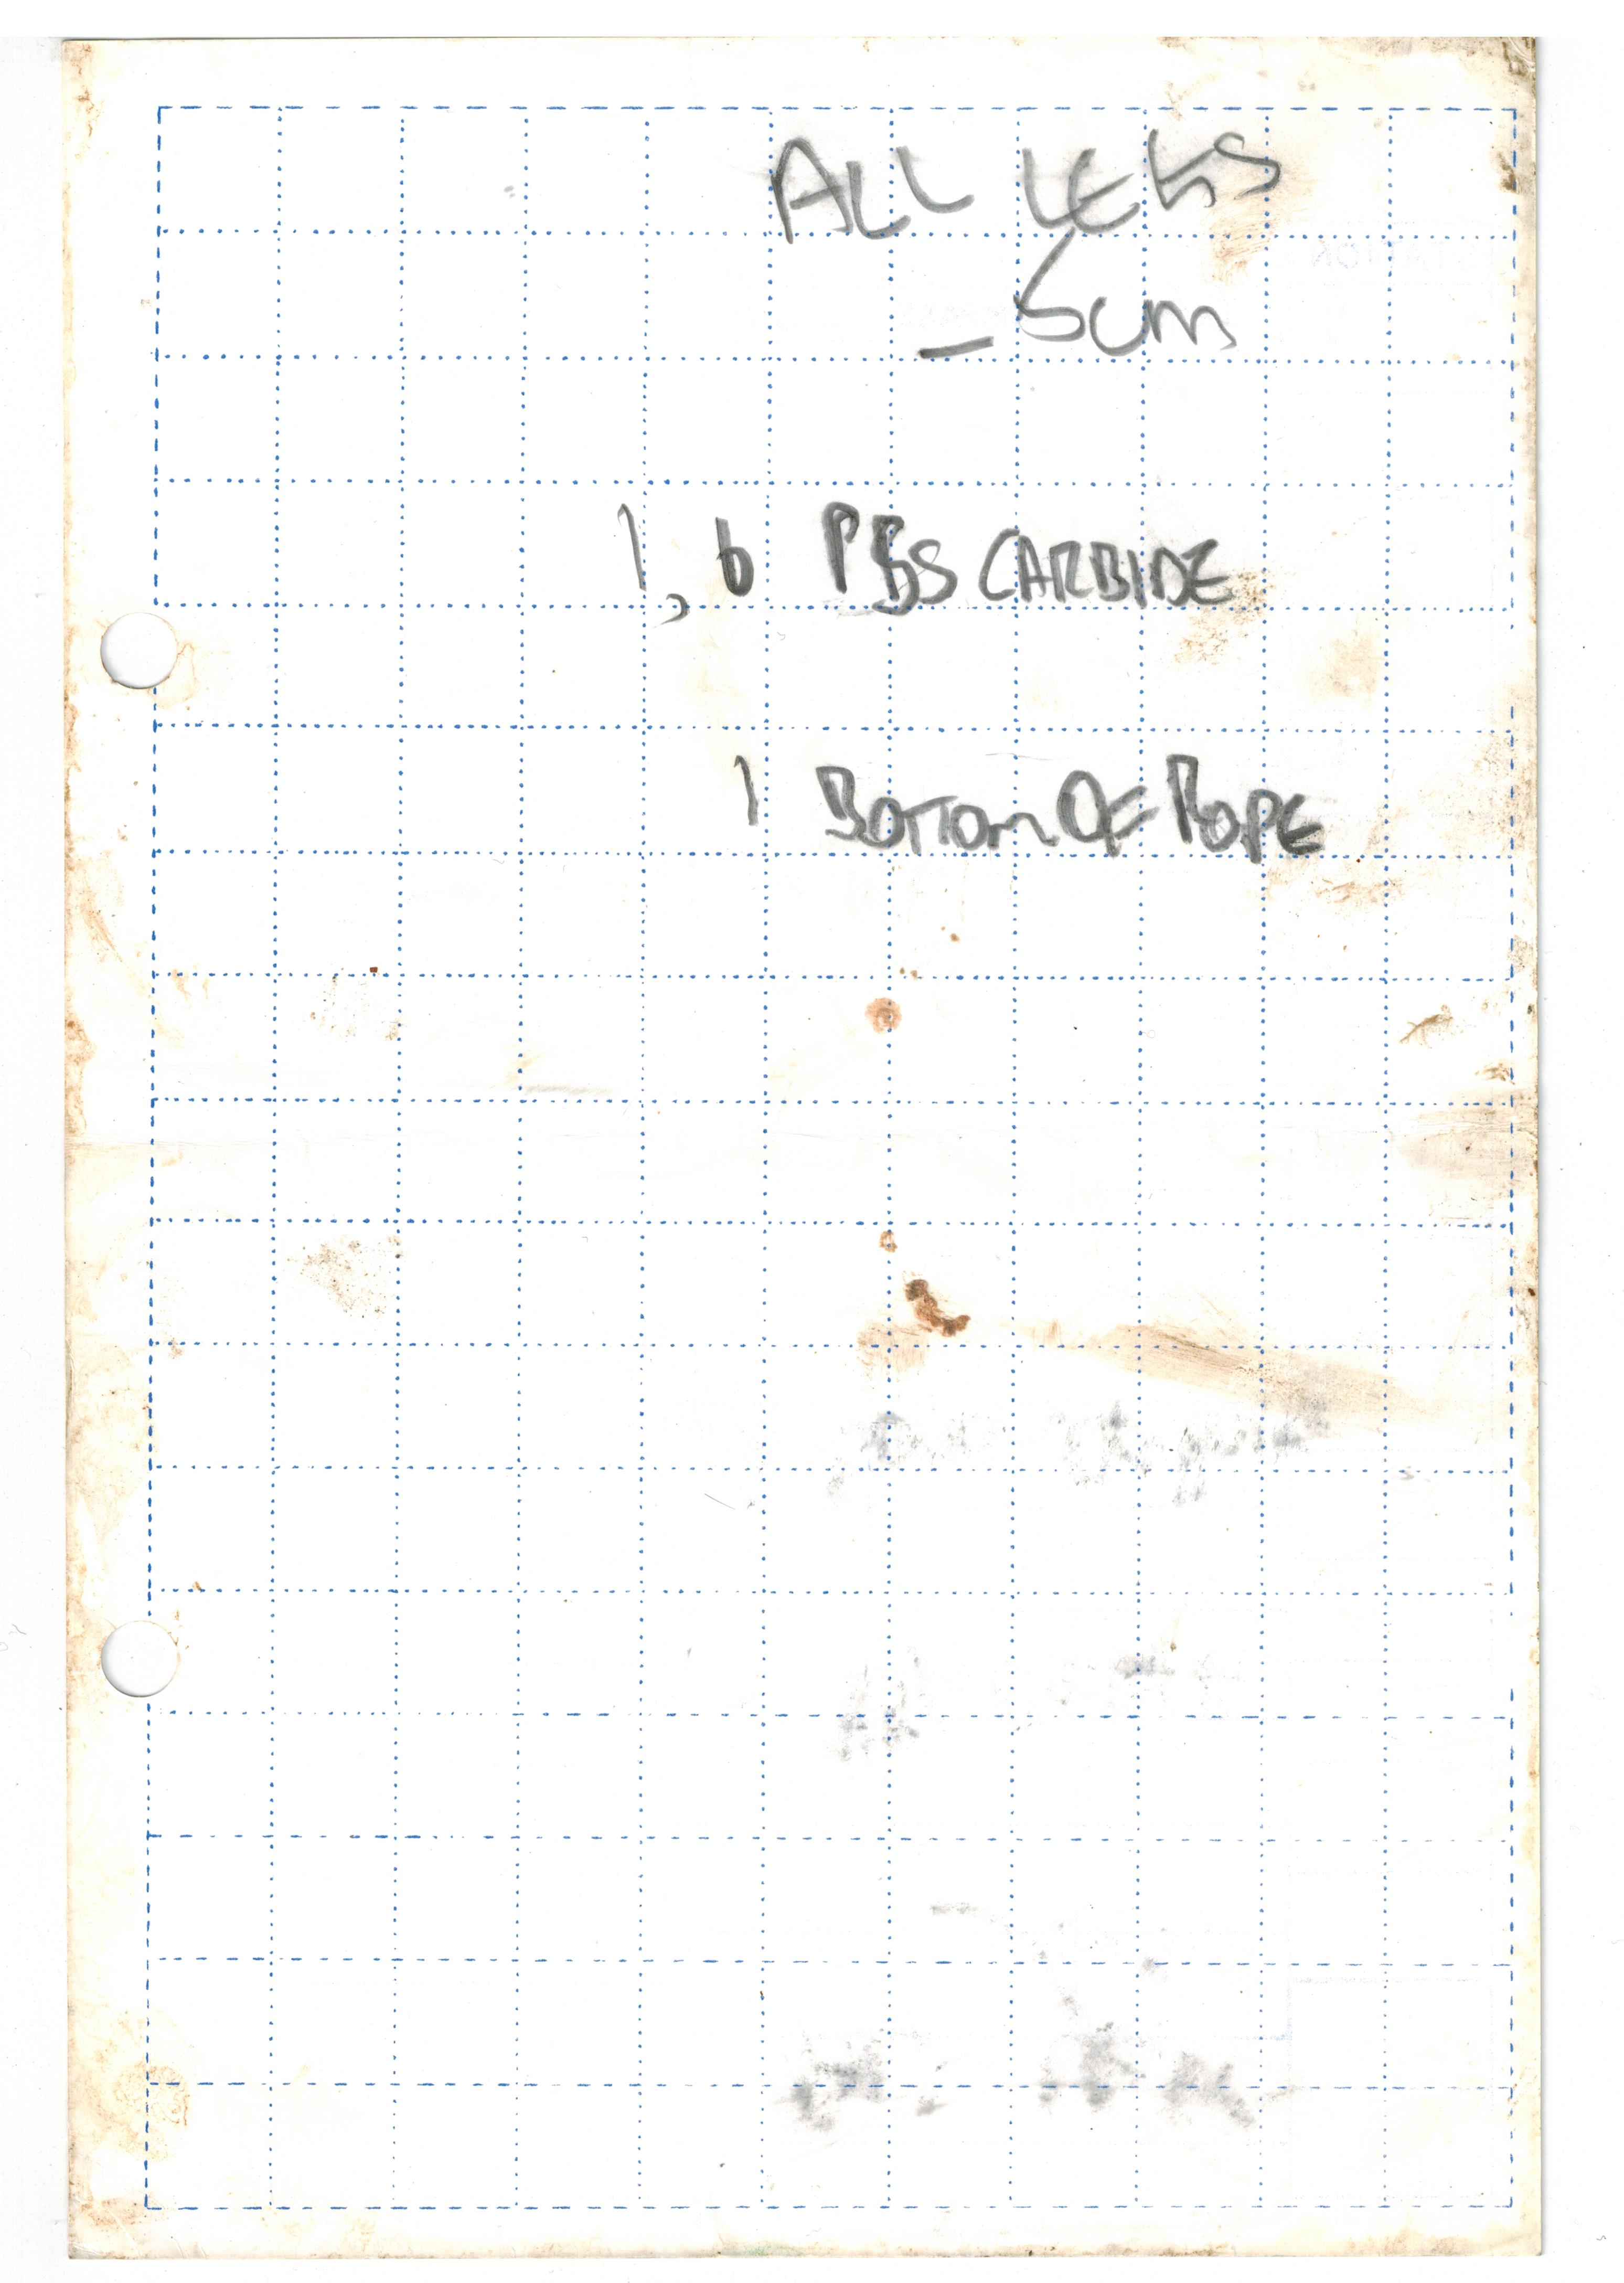 ALL LEGS
- 5cm
1, 6 PBS CARBIDE
1 BOTTOM OF ROPE